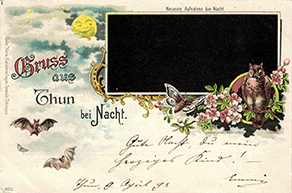 Neueste Aufnahme bei Nacht.
Gruss
aus
Thun
bei Nacht.
Gute Nacht, du mein
herziges Kind! -
Thun, 9 April 98